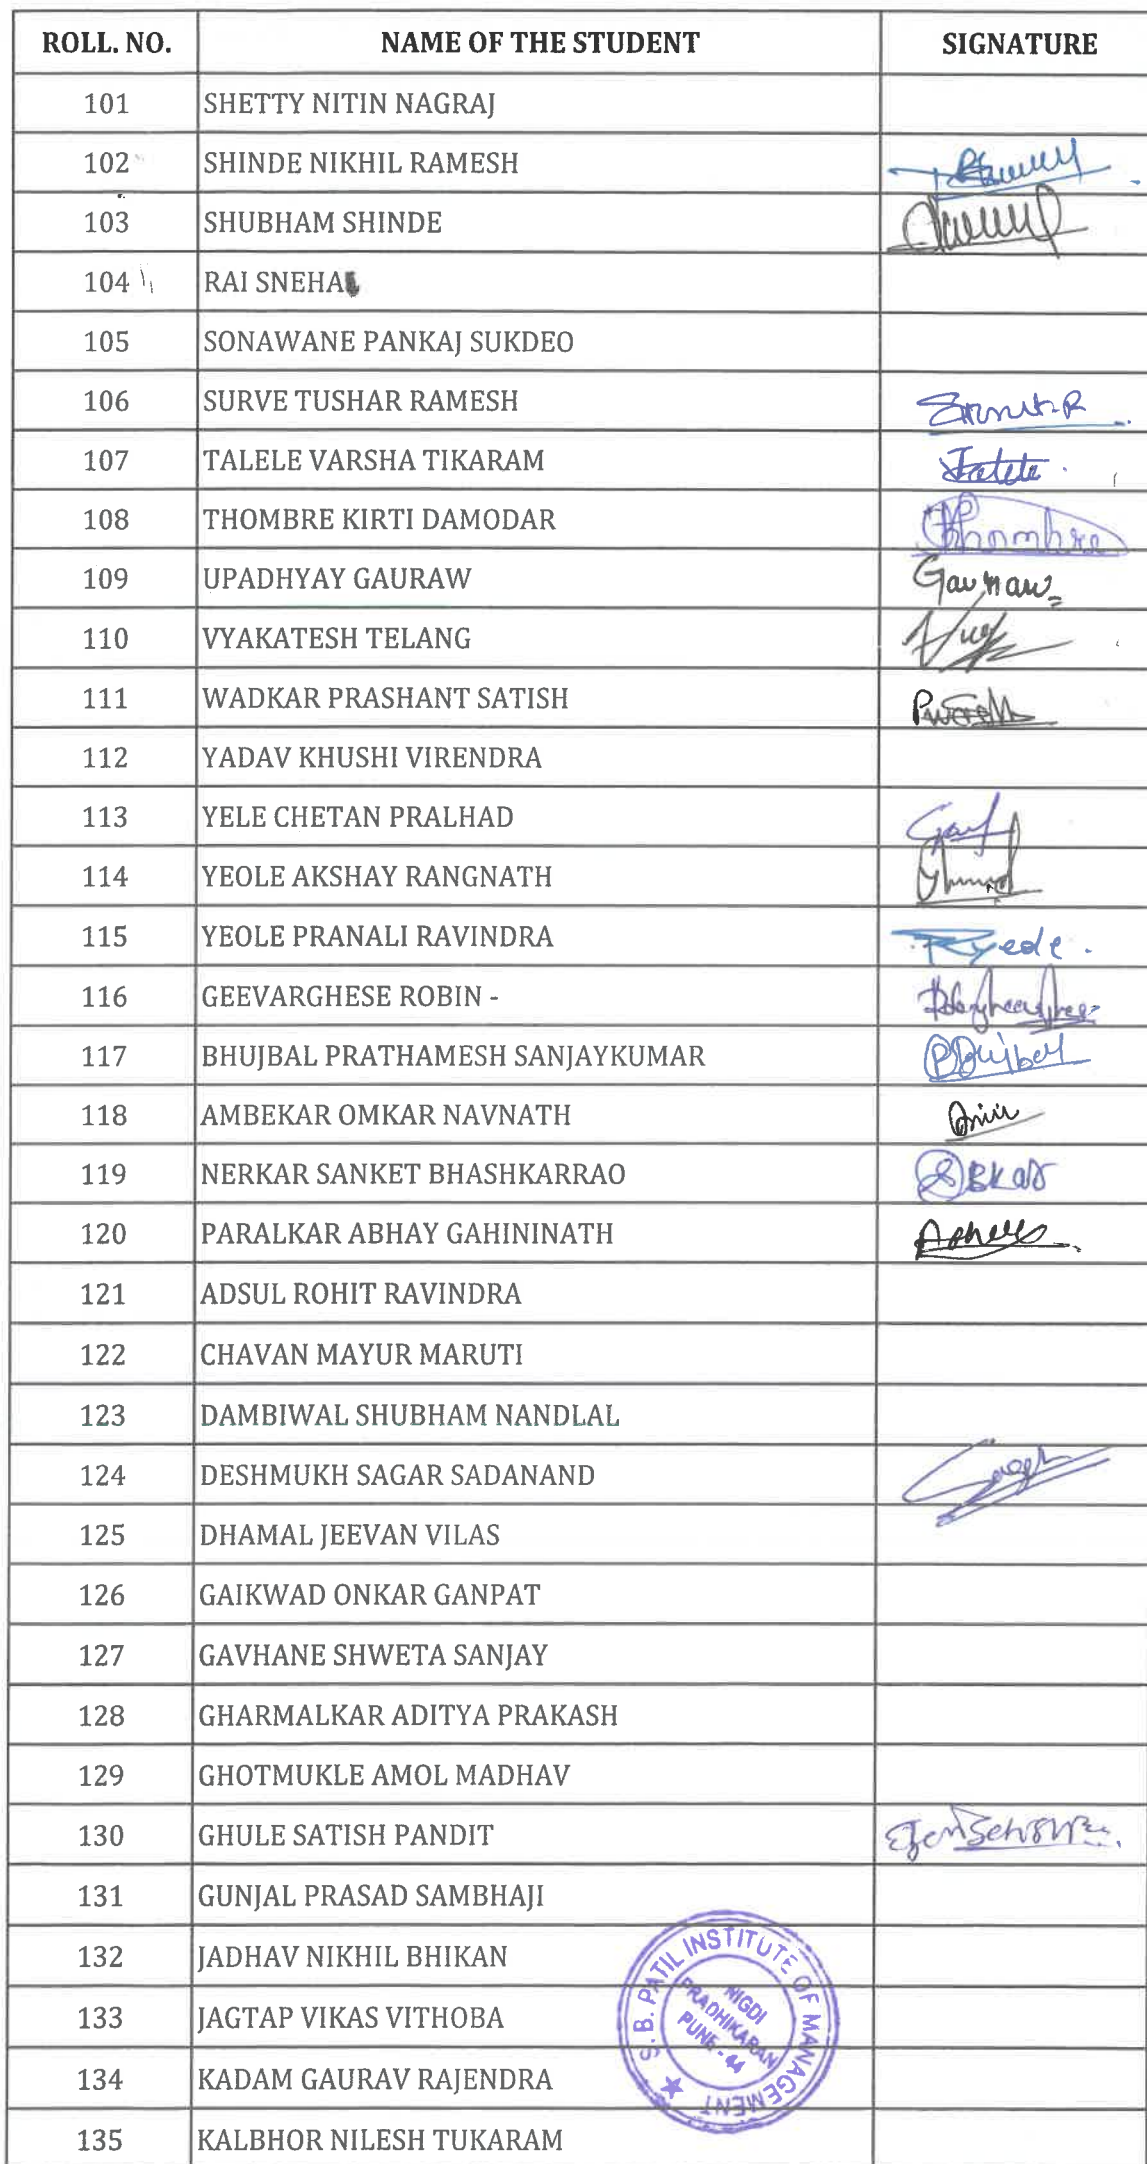 ROLL. NO. NAME OF THE STUDENT SIGNATURE
101 SHETTY NITIN NAGRAJ
102 SHINDE NIKHIL RAMESH
103 SHUBHAM SHINDE
104 RAI SNEHA
105 SONAWANE PANKAJ SUKDEO
106 SURVE TUSHAR RAMESH
107 TALELE VARSHA TIKARAM
108 THOMBRE KIRTI DAMODAR Thombre
109 UPADHYAY GAURAW Gaurav
110 VYAKATESH TELANG
111 WADKAR PRASHANT SATISH
112 YADAV KHUSHI VIRENDRA
113 YELE CHETAN PRALHAD
114 YEOLE AKSHAY RANGNATH
115 YEOLE PRANALI RAVINDRA
116 GEEVARGHESE ROBIN -
117 BHUJBAL PRATHAMESH SANJAYKUMAR
118 AMBEKAR OMKAR NAVNATH
119 NERKAR SANKET BHASHKARRAO
120 PARALKAR ABHAY GAHININATH
121 ADSUL ROHIT RAVINDRA
122 CHAVAN MAYUR MARUTI
123 DAMBIWAL SHUBHAM NANDLAL
124 DESHMUKH SAGAR SADANAND
125 DHAMAL JEEVAN VILAS
126 GAIKWAD ONKAR GANPAT
127 GAVHANE SHWETA SANJAY
128 GHARMALKAR ADITYA PRAKASH
129 GHOTMUKLE AMOL MADHAV
130 GHULE SATISH PANDIT
131 GUNJAL PRASAD SAMBHAJI
132 JADHAV NIKHIL BHIKAN
133 JAGTAP VIKAS VITHOBA
134 KADAM GAURAV RAJENDRA
135 KALBHOR NILESH TUKARAM
S. B. PATIL INSTITUTE OF MANAGEMENT
NIGDI
PRADHIKARAN
PUNE - 44